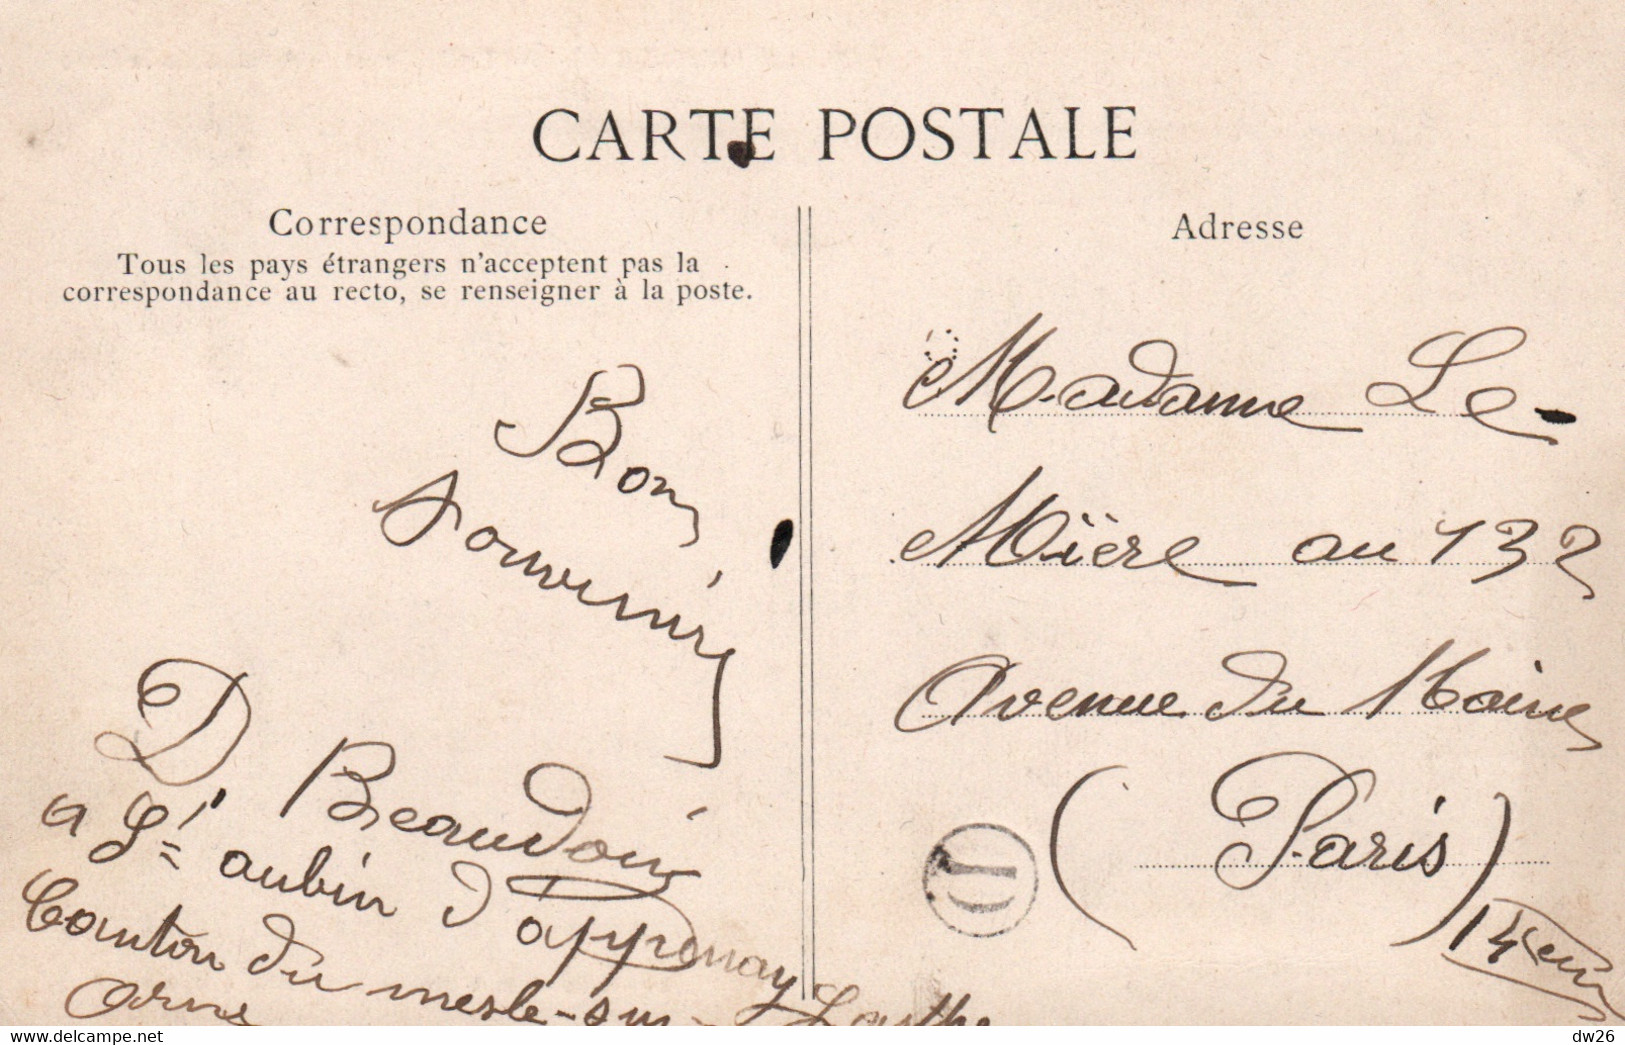 CARTE POSTALE
Correspondance
Tous les pays étrangers n'acceptent pas la
correspondance au recto, se renseigner à la poste.
Bon
souvenir
D Beaudoin
a St aubin d'appenay
Canton du mesle-sur-Sarthe
Orne
Adresse
Madame Le-
Mïère au 132
Avenue du Maine
(Paris)
14em
D
delcampe.net
dw26